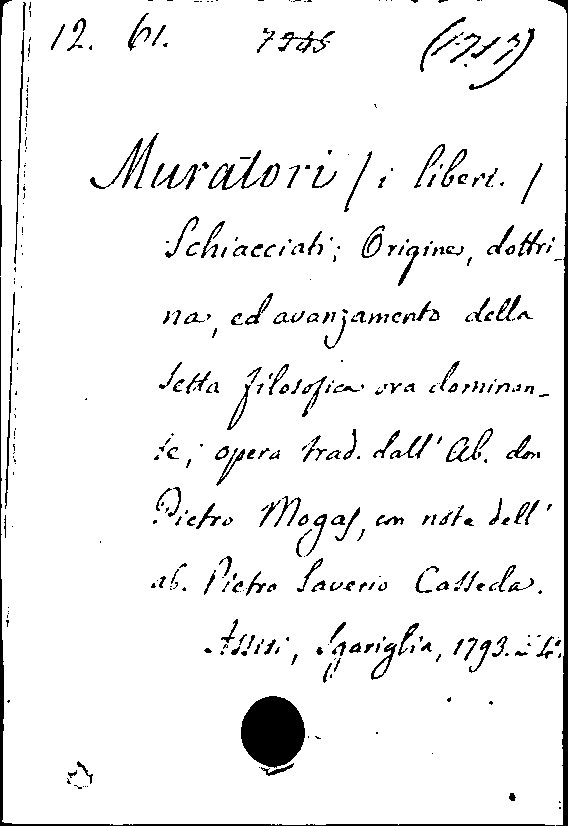 12. 61. (1717)
Muratori / i liberi. /
Schiacciati; Origine, dottri-
na, ed avanzamento della
setta filosofica ora dominan-
te; opera trad. dall' Ab. don
Pietro Mogas, con note dell'
ab. Pietro Saverio Casseda.
Assisi, Sgariglia, 1793.